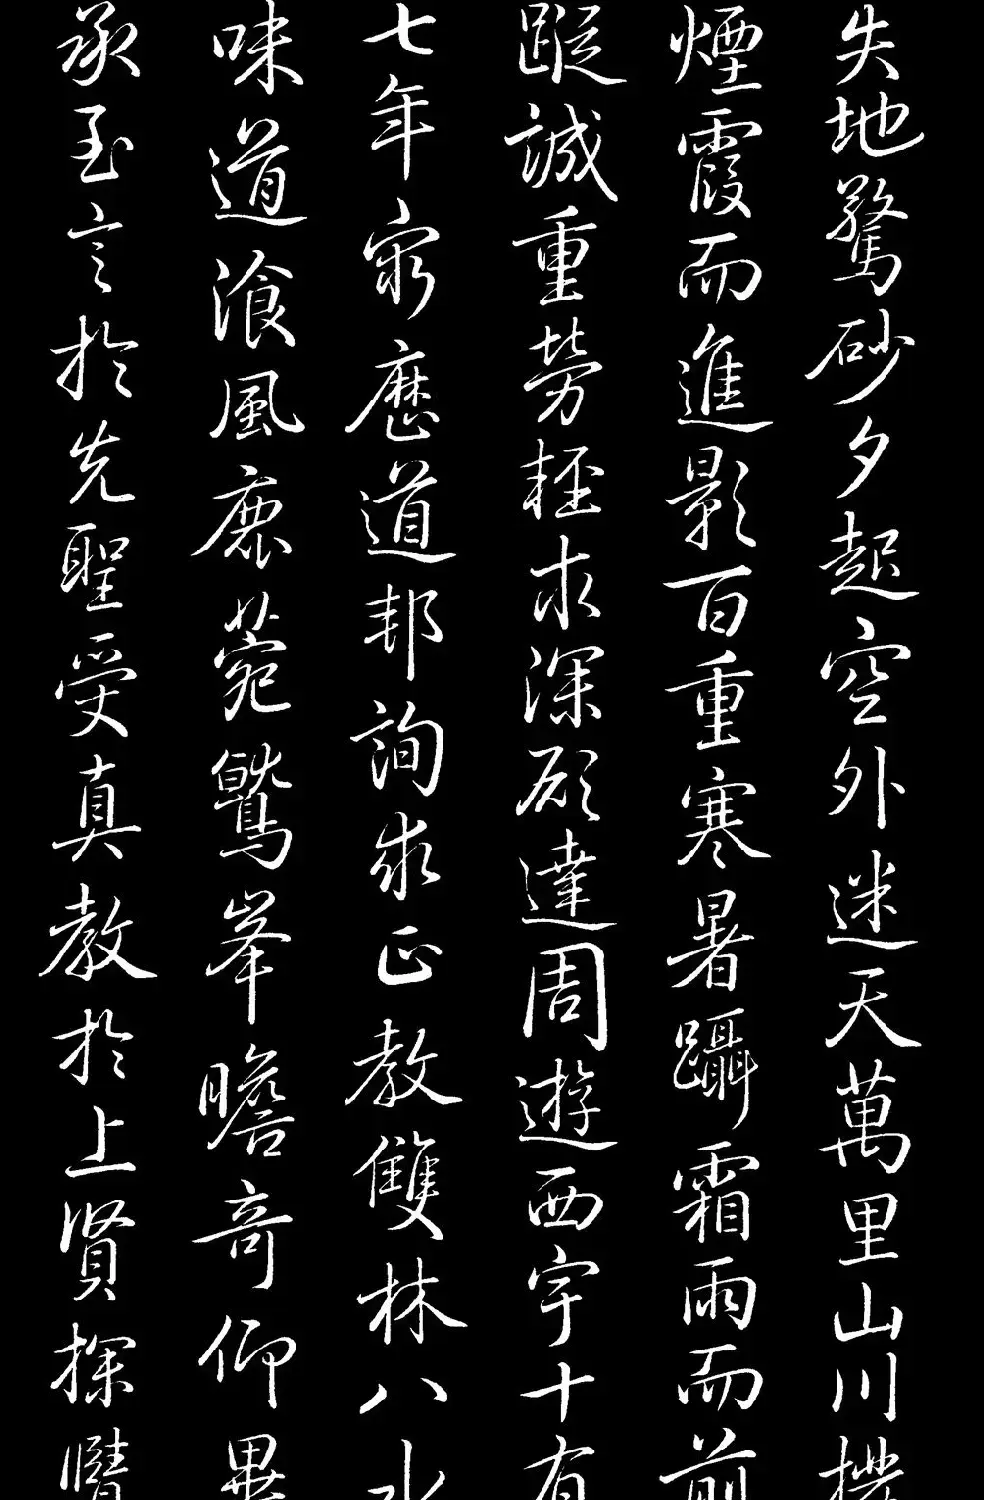 失地驚砂夕起空外迷天萬里山川撥
煙霞而進影百重寒暑躡霜雨而前
蹤誠重勞輕求深願達周遊西宇十有
七年窮歷道邦詢求正教雙林八水
味道飡風鹿菀鷲峯瞻奇仰異
承至言於先聖受真教於上賢探賾